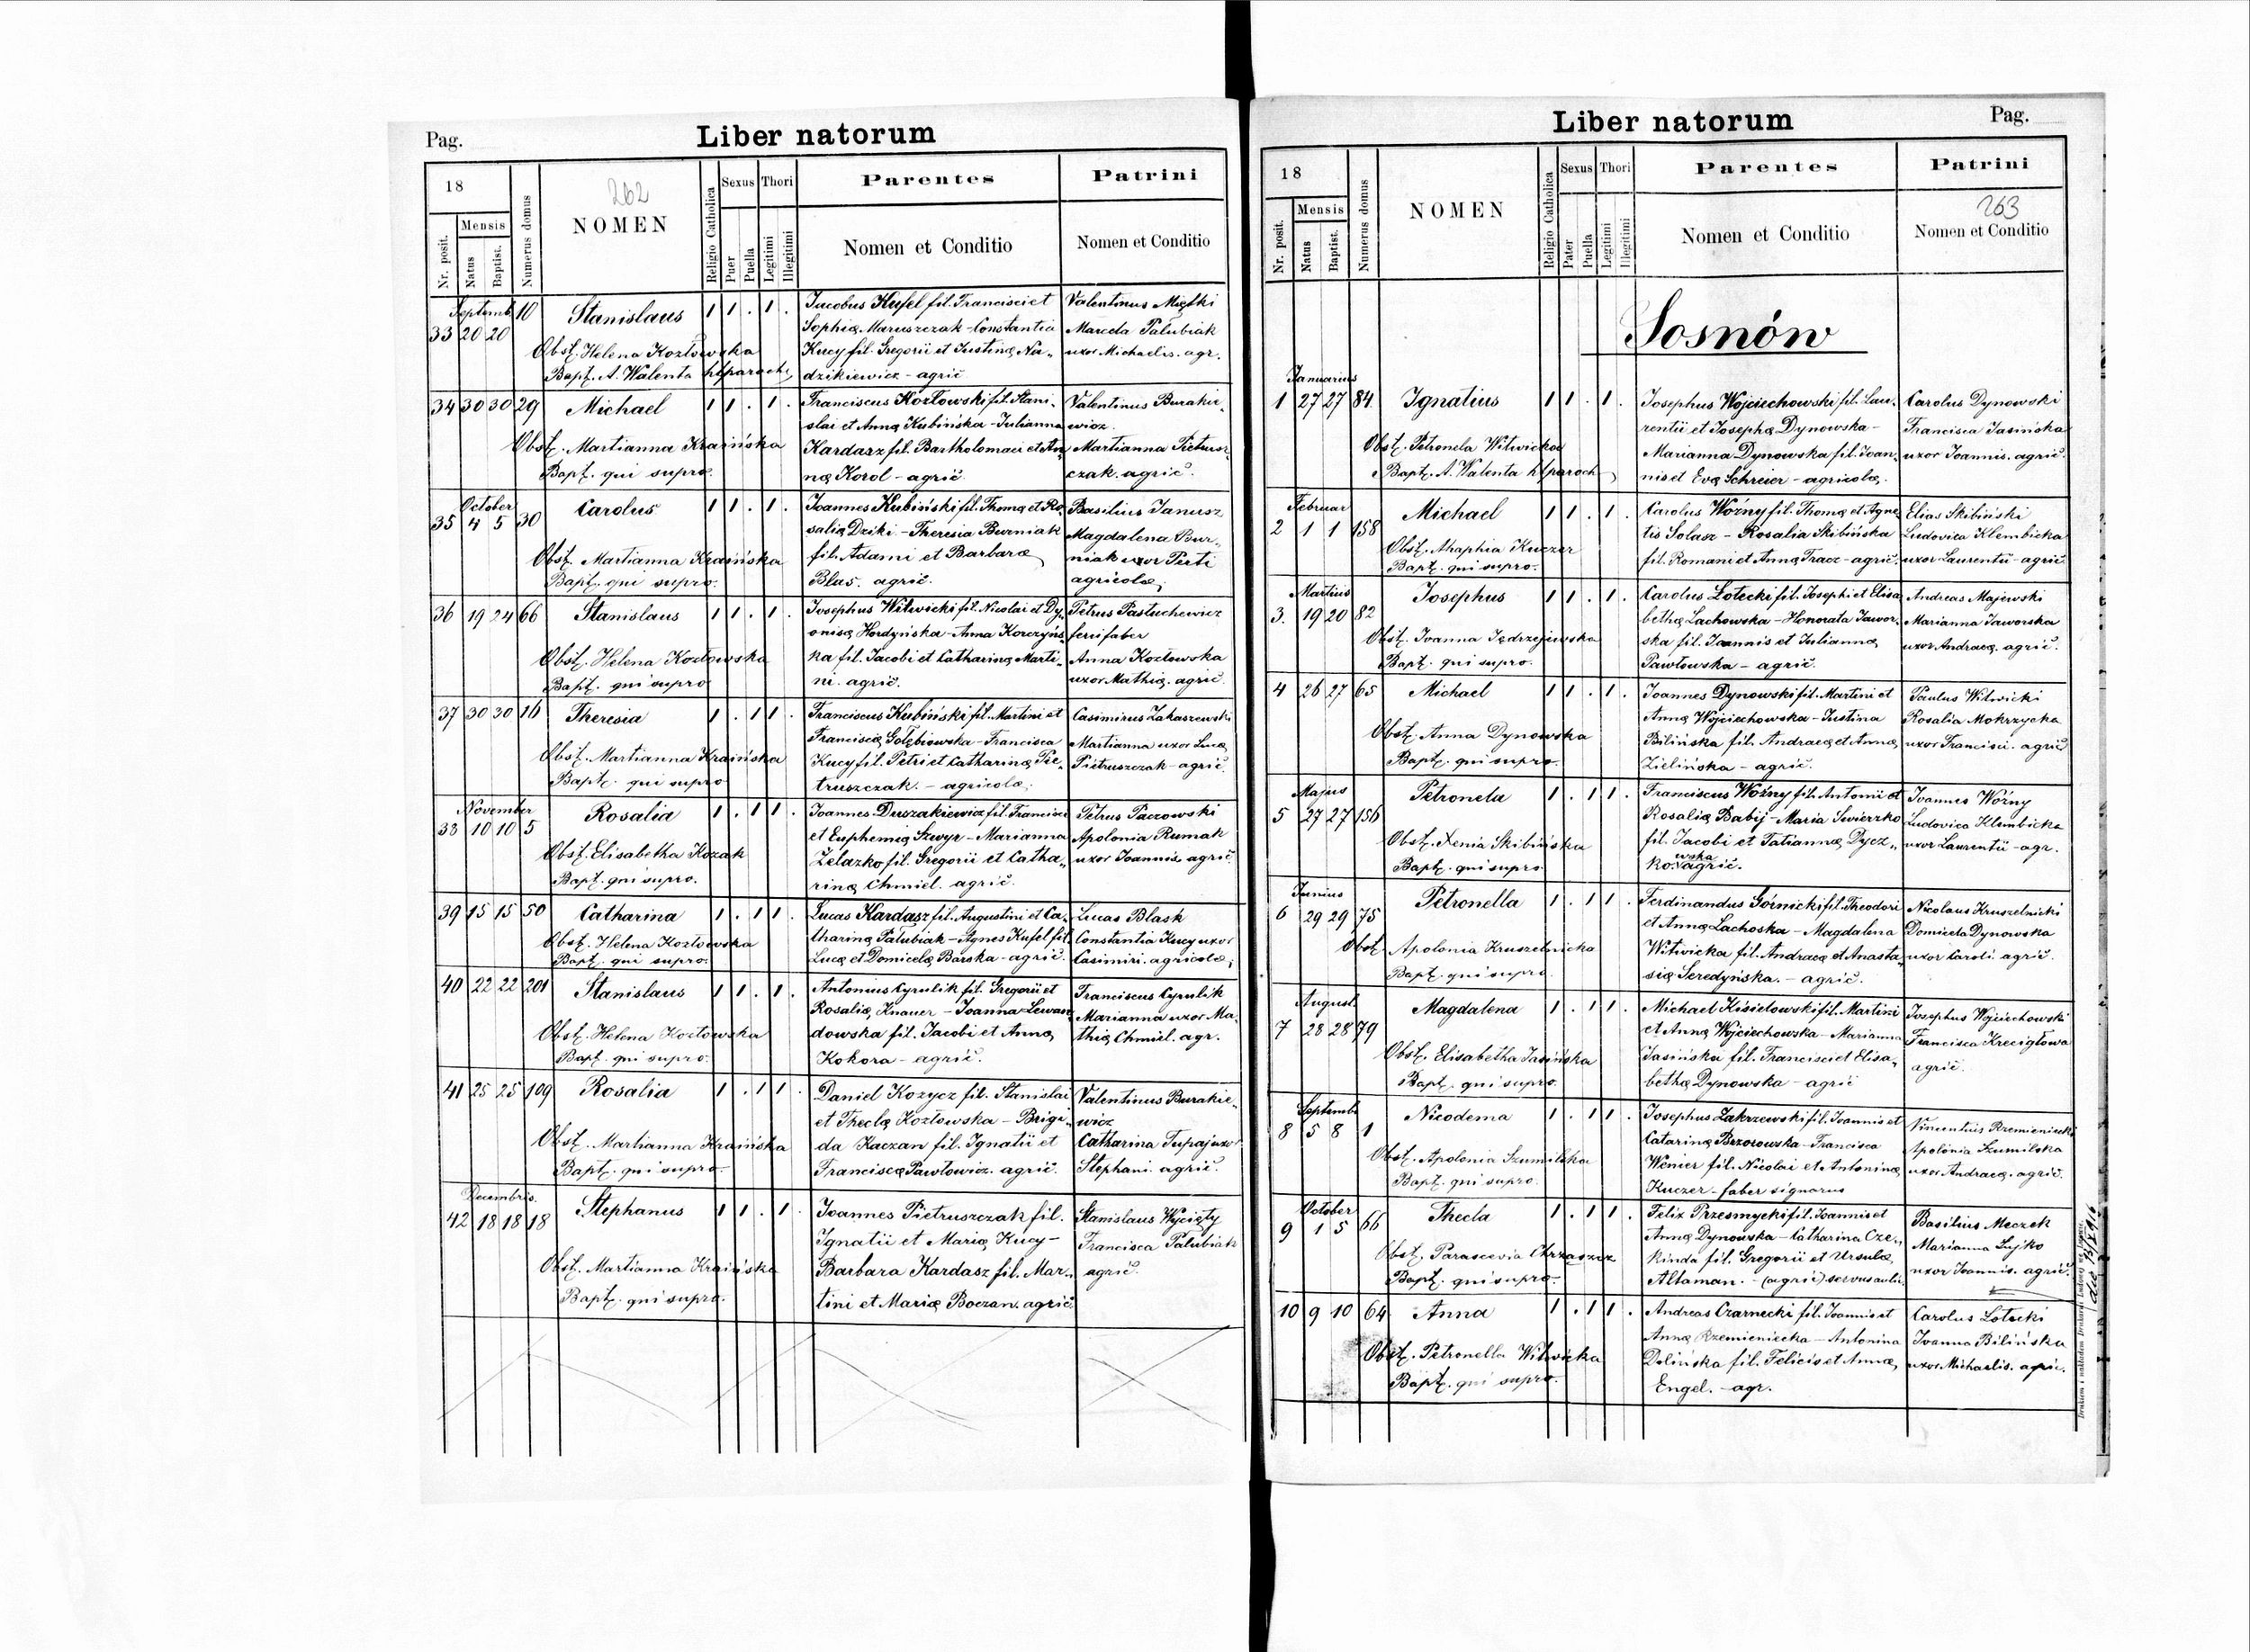 Pag.
Liber natorum
18
262
NOMEN
Nr. posit.
Mensis
Natus
Baptist.
Numerus domus
Religio Catholica
Sexus
Puer
Puella
Thori
Legitimi
Illegitimi
Parentes
Nomen et Conditio
Patrini
Nomen et Conditio
Septemb.
33 20 20 10 Stanislaus 1 1 . 1 .
Obst. Helena Kozłowska
Bapt. A. Walenta
Jacobus Kufel fil. Francisci et
Sophiæ Maruszczak - Constantia
Kucy fil. Gregorii et Justinæ Na-
dzikiewicz - agric.
Valentinus Miętki
Marcela Pałubiak
uxor Michaelis. agr.
34 30 30 29 Michael 1 1 . 1 .
Obst. Martianna Kraińska
Bapt. qui supro.
Franciscus Kozłowski fil. Stani-
slai et Annæ Kubińska - Julianna
Kardasz fil. Bartholomaei et An-
næ Korol - agric.
Valentinus Burakie-
wicz.
Martianna Pietrusz-
czak. agric.
October
35 4 5 30 Carolus 1 1 . 1 .
Obst. Martianna Kraińska
Bapt. qui supro.
Joannes Kubiński fil. Thomæ et Ro-
saliæ Dziki - Theresia Burniak
fil. Adami et Barbaræ
Blas. agric.
Basilius Janusz
Magdalena Bur-
niak uxor Petri
agricolæ,
36 19 24 66 Stanislaus 1 1 . 1 .
Obst. Helena Kozłowska
Bapt. qui supro
Josephus Witwicki fil. Nicolai et Dy-
onisæ Hordyńska - Anna Korczyńs-
ka fil. Jacobi et Catharinæ Marti-
ni. agric.
Petrus Pastuchewicz
ferrifaber
Anna Kozłowska
uxor Mathiæ. agric.
37 30 30 16 Theresia 1 . 1 1 .
Obst. Martianna Kraińska
Bapt. qui supro
Franciscus Kubiński fil. Martini et
Franciscæ Gołębiowska - Francisca
Kucy fil. Petri et Catharinæ Pie-
truszczak. - agricolæ,
Casimirus Zakaszewski
Martianna uxor Lucæ
Pietruszczak - agric.
November
38 10 10 5 Rosalia 1 . 1 1 .
Obst. Elisabetha Kozak
Bapt. qui supro.
Joannes Duszakiewicz fil. Francisci
et Euphemiæ Szwyr - Marianna
Żelazko fil. Gregorii et Catha-
rinæ Chmiel. agric.
Petrus Paczowski
Apolonia Rumak
uxor Joannis. agric.
39 15 15 50 Catharina 1 . 1 1 .
Obst. Helena Kozłowska
Bapt. qui supro.
Lucas Kardasz fil. Augustini et Ca-
tharinæ Pałubiak - Agnes Kufel fil.
Lucæ et Domicelæ Barska - agric.
Lucas Blask
Constantia Kucy uxor
Casimiri. agricolæ,
40 22 22 201 Stanislaus 1 1 . 1 .
Obst. Helena Kozłowska
Bapt. qui supro.
Antonius Cyrulik fil. Gregorii et
Rosaliæ Knauer - Joanna Lewan-
dowska fil. Jacobi et Annæ
Kokora - agric.
Franciscus Cyrulik
Marianna uxor Ma-
thiæ Chmiel. agr.
41 25 25 109 Rosalia 1 . 1 1 .
Obst. Martianna Kraińska
Bapt. qui supro.
Daniel Kozycz fil. Stanislai
et Theclæ Kozłowska - Brigi-
da Kaczan fil. Ignatii et
Franciscæ Pawłowicz. agric.
Valentinus Burakie-
wicz
Catharina Tupaj uxor
Stephani. agric.
Decembris.
42 18 18 18 Stephanus 1 1 . 1 .
Obst. Martianna Kraińska
Bapt. qui supro.
Joannes Pietruszczak fil.
Ignatii et Mariæ Kucy -
Barbara Kardasz fil. Mar-
tini et Mariæ Boczan. agric.
Stanislaus Wycięty
Francisca Pałubiak
agric.
Liber natorum
Pag.
18
Nr. posit.
Mensis
Natus
Baptist.
Numerus domus
NOMEN
Religio Catholica
Sexus
Pater
Puella
Thori
Legitimi
Illegitimi
Parentes
Nomen et Conditio
Patrini
263
Nomen et Conditio
Sosnów
Januarius
1 27 27 84 Ignatius 1 1 . 1 .
Obst. Petronela Witwicka
Bapt. A. Walenta
Josephus Wojciechowski fil. Lau-
rentii et Josephæ Dynowska -
Marianna Dynowska fil. Joan-
nis et Evæ Schreier - agricolæ.
Carolus Dynowski
Francisca Jasińska
uxor Joannis. agric.
Februar
2 1 1 158 Michael 1 1 . 1 .
Obst. Ahaphia Kuczer
Bapt. qui supro.
Carolus Woźny fil. Thomæ et Agne-
tis Solasz - Rosalia Skibińska
fil. Romani et Annæ Tracz - agric.
Elias Skibiński
Ludovica Klembicka
uxor Laurentii - agric.
Martius
3. 19 20 82 Josephus 1 1 . 1 .
Obst. Joanna Jędrzejewska
Bapt. qui supro.
Carolus Łotecki fil. Josephi et Elisa-
bethæ Lachowska - Honorata Jawor-
ska fil. Joannis et Juliannæ
Pawłowska - agric.
Andreas Majewski
Marianna Jaworska
uxor Andreæ. agric.
4 26 27 65 Michael 1 1 . 1 .
Obst. Anna Dynowska
Bapt. qui supro.
Joannes Dynowski fil. Martini et
Annæ Wojciechowska - Justina
Bilińska fil. Andreæ et Annæ
Zielińska - agric.
Paulus Witwicki
Rosalia Mokrzycka
uxor Francisci. agric
Majus
5 27 27 156 Petronela 1 . 1 1 .
Obst. Xenia Skibińska
Bapt. qui supro
Franciscus Woźny fil. Antonii et
Rosaliæ Babij - Maria Swierzko
fil. Jacobi et Tatiannæ Dycz-
kowska agric.
Joannes Woźny
Ludovica Klembicka
uxor Laurentii - agr.
Junius
6 29 29 75 Petronella 1 . 1 1 .
Obst. Apolonia Kruszelnicka
Bapt. qui supro.
Ferdinandus Górnicki fil. Theodori
et Annæ Lachoska - Magdalena
Witwicka fil. Andreæ et Anasta-
siæ Seredyńska. - agric.
Nicolaus Kruszelnicki
Domicela Dynowska
uxor Caroli agric.
August
7 28 28 79 Magdalena 1 . 1 1 .
Obst. Elisabetha Jasińska
Bapt. qui supro.
Michael Kisielowski fil. Martini
et Annæ Wojciechowska - Marianna
Jasińska fil. Francisci et Elisa-
bethæ Dynowska - agric
Josephus Wojciechowski
Francisca Krecigłowa
agric.
Septemb
8 5 8 1 Nicodema 1 . 1 1 .
Obst. Apolonia Szumilska
Bapt. qui supro.
Josephus Zakrzewski fil. Joannis et
Catarinæ Brzozowska - Francisca
Wenier fil. Nicolai et Antoninæ
Kuczer - faber signarus
Vincentius Rzemieniecki
Apolonia Szumilska
uxor Andreæ. agric.
October
9 1 5 66 Thecla 1 . 1 1 .
Obst. Parascevia Chrzaszcz
Bapt. qui supro.
Felix Przesmycki fil. Joannis et
Annæ Dynowska - Catharina Cze-
kinda fil. Gregorii et Ursulæ
Altaman. - (agric) servus aulic.
Basilius Meczek
Marianna Sujko
uxor Joannis. agric.
10 9 10 64 Anna 1 . 1 1 .
Obst. Petronella Witwicka
Bapt. qui supro.
Andreas Czarnecki fil. Joannis et
Annæ Rzemieniecka - Antonina
Dolińska fil. Felicis et Annæ
Engel. - agr.
Carolus Łotocki
Joanna Bilińska
uxor Michaelis. agric.